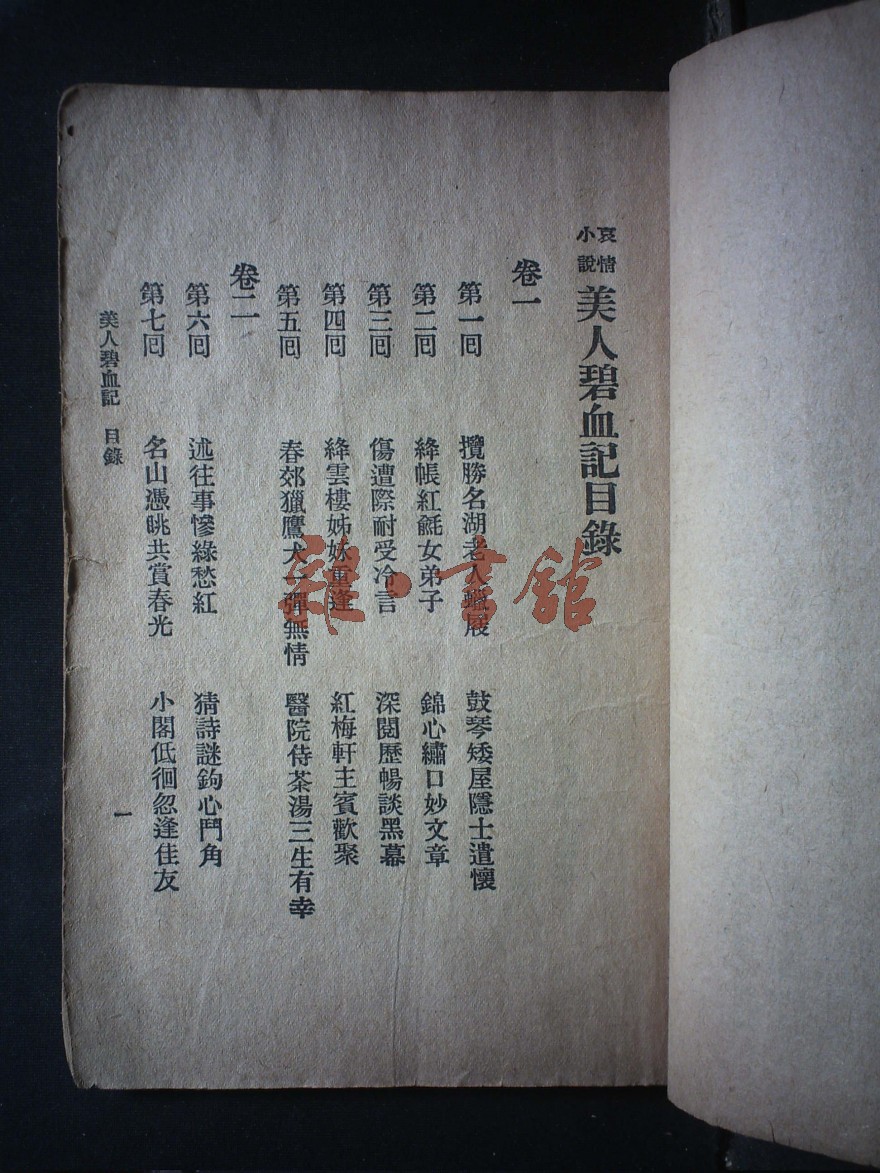 哀情小說 美人碧血記目錄
卷一
第一囘 攬勝名湖老人蠟屐 鼓琴矮屋隱士遣懷
第二囘 絳帳紅氈女弟子 錦心繡口妙文章
第三囘 傷遭際耐受冷言 深閱歷暢談黑幕
第四囘 絳雲樓姊妹重逢 紅梅軒主賓歡聚
第五囘 春郊獵鷹犬一彈無情 醫院侍茶湯三生有幸
卷二
第六囘 述往事慘綠愁紅 猜詩謎鉤心鬥角
第七囘 名山憑眺共賞春光 小閣低徊忽逢佳友
美人碧血記 目錄 一
雜·書館